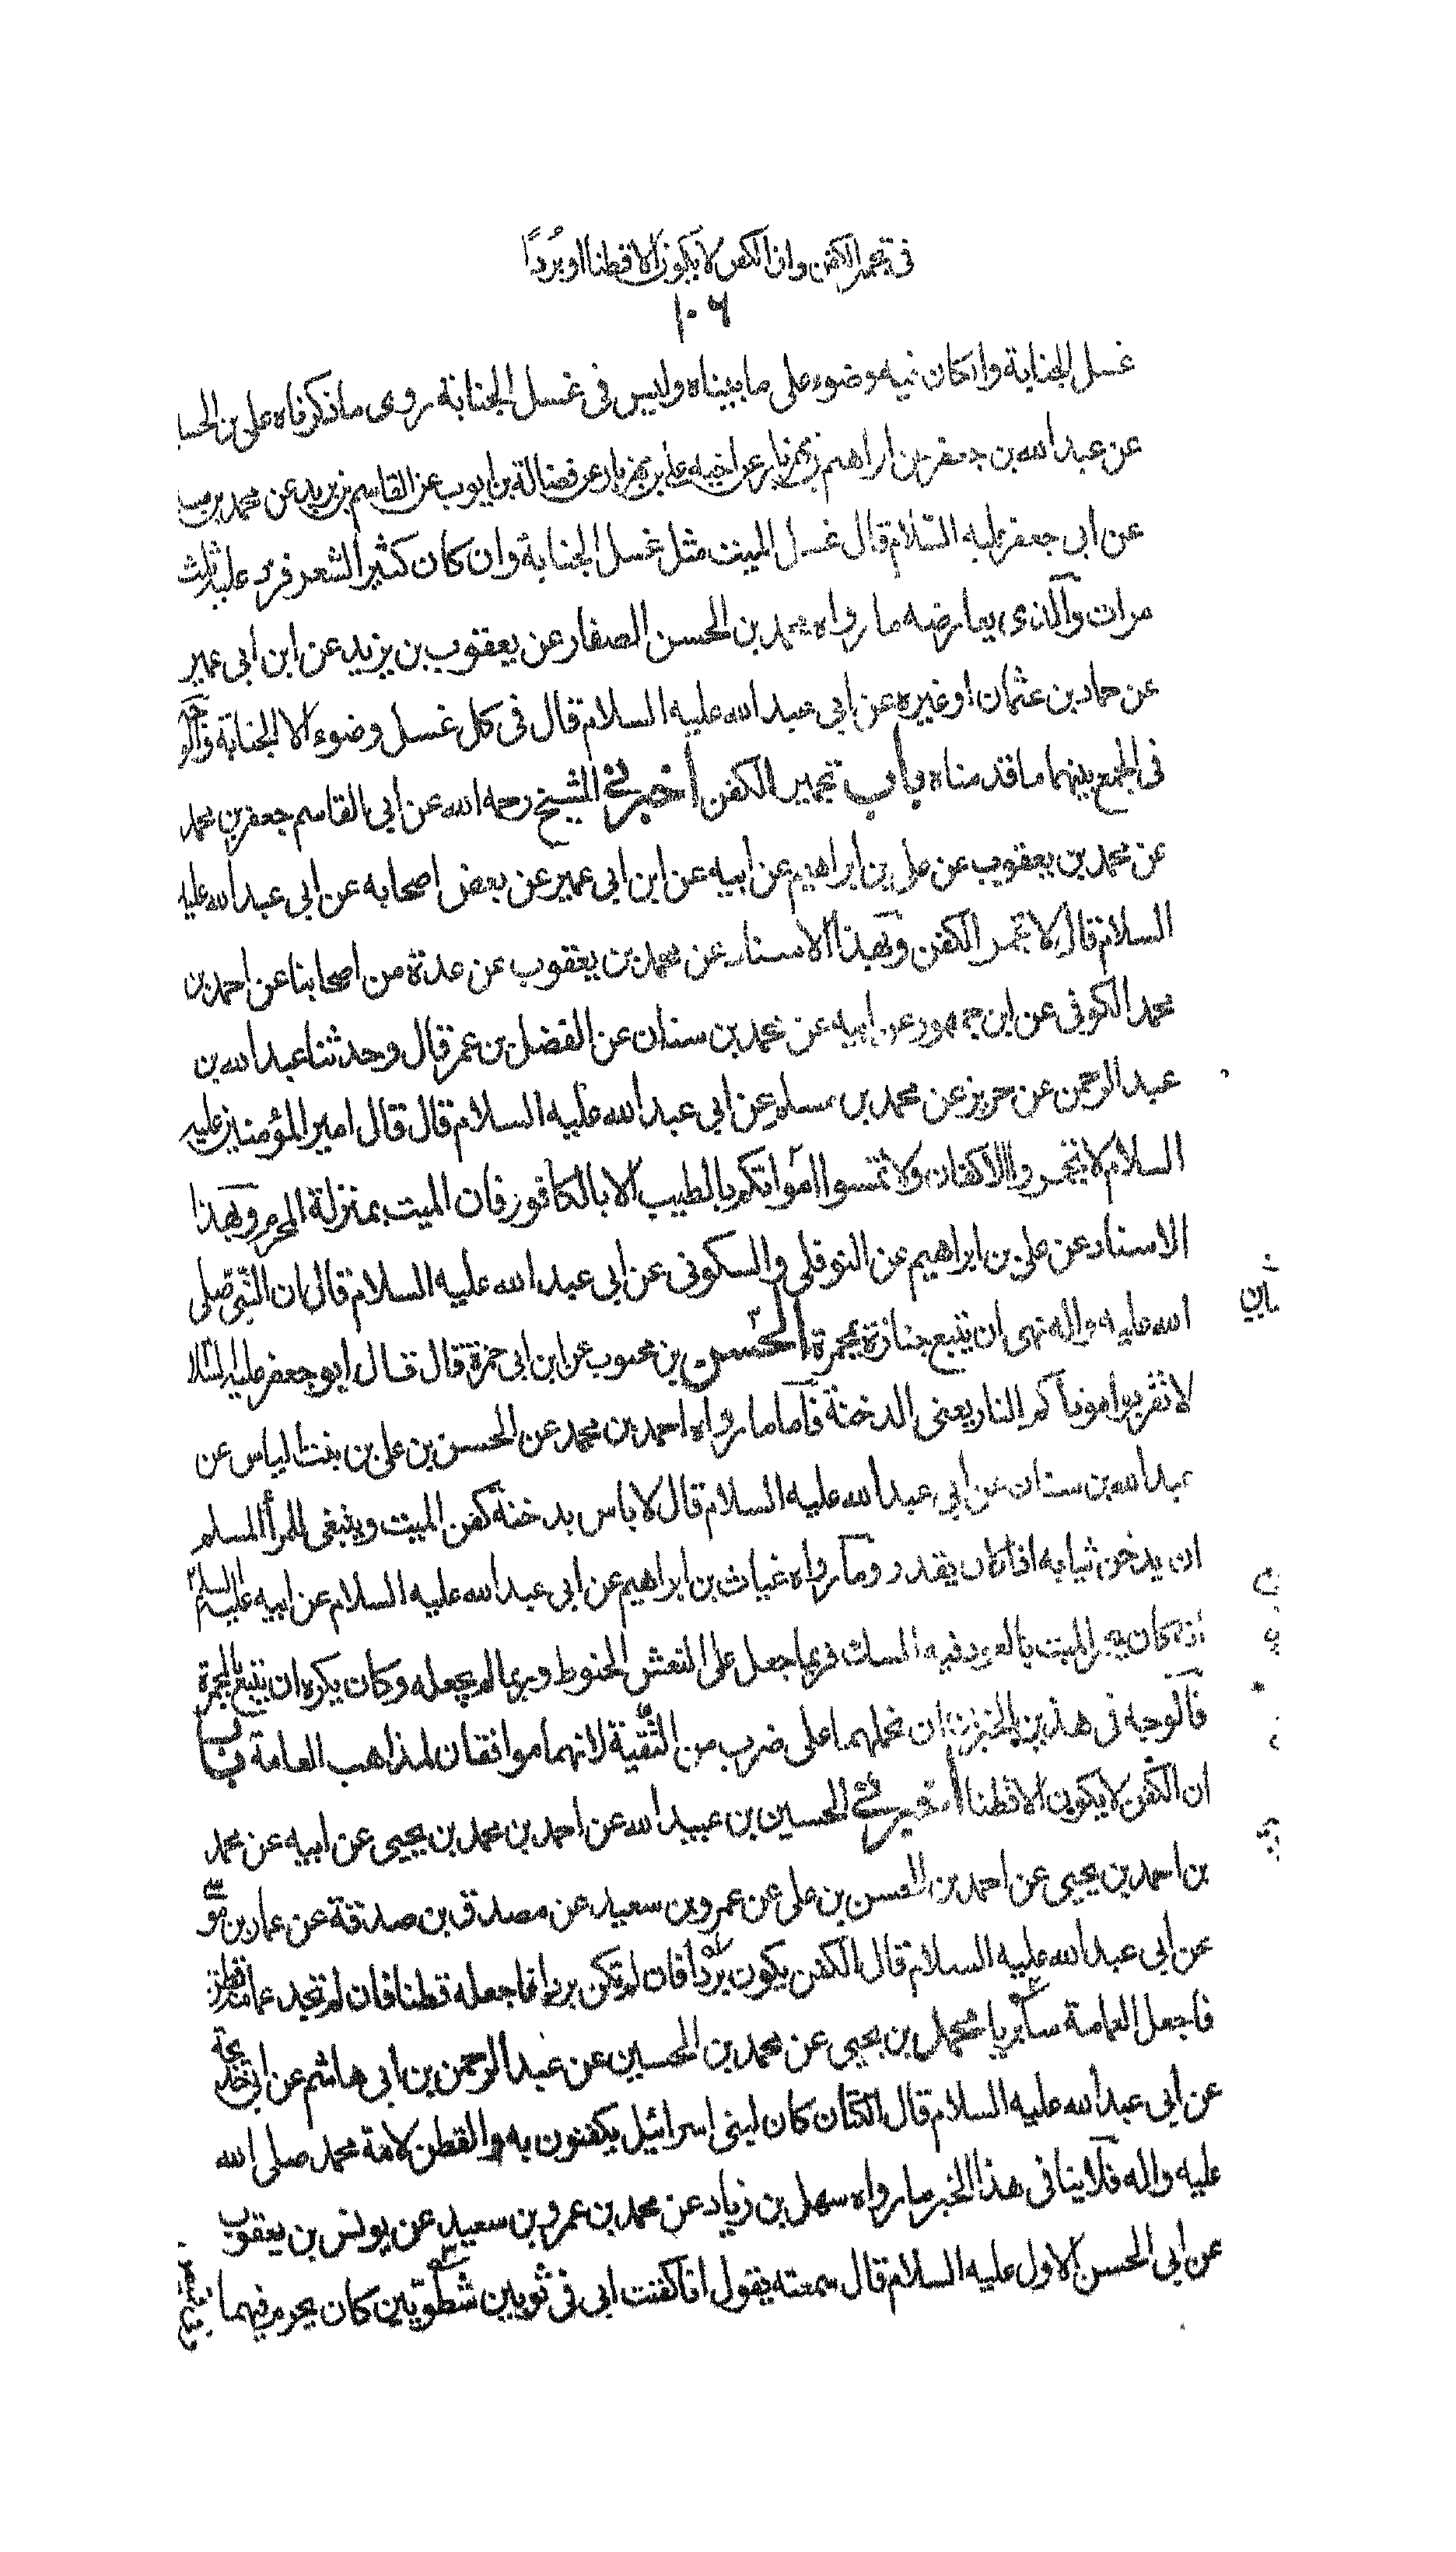 فى تجمير الكفن وان الكفن لا يكون الا قطنا او بُردًا
١٠٦
غسل الجنابة وان كان فيه وضوء على ما بيناه وليس فى غسل الجنابة روى ما ذكرناه على بن الحسـ
عن عبد الله بن جعفر عن ابراهيم بن مهزيار عن اخيه على بن مهزيار عن فضالة بن ايوب عن القاسم بن بريد عن محمد بن مسـ
عن ابى جعفر عليه السّلام قال غسل الميت مثل غسل الجنابة وان كان كثير الشعر فرد عليه ثلث
مرات وآلذى يعارضه ما رواه محمد بن الحسن الصفار عن يعقوب بن يزيد عن ابن ابى عمير
عن حماد بن عثمان او غيره عن ابى عبد الله عليه السلام قال فى كل غسل وضوء الا الجنابة
فى الجمع بينهما ما قدمناه باب تجمير الكفن أخبرنى الشيخ رحمه الله عن ابى القاسم جعفر بن محمد
عن محمد بن يعقوب عن على بن ابراهيم عن ابيه عن ابن ابى عمير عن بعض اصحابه عن ابى عبد الله عليه
السلام قال لا تجمر الكفن وبهذا الاسناد عن محمد بن يعقوب عن عدة من اصحابنا عن احمد بن
محمد الكوفى عن ابن جمهور عن ابيه عن محمد بن سنان عن المفضل بن عمر قال وحدثنا عبد الله بن
عبد الرحمن عن حريز عن محمد بن مسلم عن ابى عبد الله عليه السلام قال قال امير المؤمنين عليه
السلام لا تجمروا الاكفان ولا تمسوا امواتكم بالطيب الا بالكافور فان الميت بمنزلة المحرم وبهذا
الاسناد عن على بن ابراهيم عن النوفلى والسكونى عن ابى عبد الله عليه السلام قال ان النّبى صّلى
الله عليه واله نهى ان يتبع جنازة بمجمرة الحسن بن محبوب عن ابن ابى حمزة قال قال ابو جعفر عليه السّلام
لا تقربوا موتاكم النار يعنى الدخنة فآما ما رواه احمد بن محمد عن الحسن بن على بن بنت الياس عن
عبد الله بن سنان عن ابى عبد الله عليه السلام قال لا باس بدخنة كفن الميت وينبغى للمرأ المسلم
ان يدخن ثيابه اذا كان يقدر ومآ رواه غياث بن ابراهيم عن ابى عبد الله عليه السلام عن ابيه عليه السلم
انه كان يجمر الميت بالعود فيه المسك فربما جعل على النعش الحنوط وربما لم يجعله وكان يكره ان يتبع الميت بالمجمرة
فآلوجه فى هذين الخبرين ان نحملهما على ضرب من التّقية لانهما موافقان لمذاهب العامة باب
ان الكفن لا يكون الا قطنا أخبرنى الحسين بن عبيد الله عن احمد بن محمد بن يحيى عن ابيه عن محمد
بن احمد بن يحيى عن احمد بن الحسن بن على عن عمرو بن سعيد عن مصدق بن صدقة عن عمار بن موسى
عن ابى عبد الله عليه السلام قال الكفن يكون بردًا فان لم تكن بردا فاجعله قطنا فان لم تجد عمامة قطن
فاجعل العمامة سابريا محمد بن يحيى عن محمد بن الحسين عن عبد الرحمن بن ابى هاشم عن ابى خديجة
عن ابى عبد الله عليه السلام قال الكتّان كان لبنى اسرائيل يكفنون به والقطن لامة محمد صلى الله
عليه واله فلآ ينافى هذا الخبر ما رواه سهل بن زياد عن محمد بن عمرو بن سعيد عن يونس بن يعقوب
عن ابى الحسن الاول عليه السلام قال سمعته يقول انا كفنت ابى فى ثوبين شطويّين كان يحرم فيهما